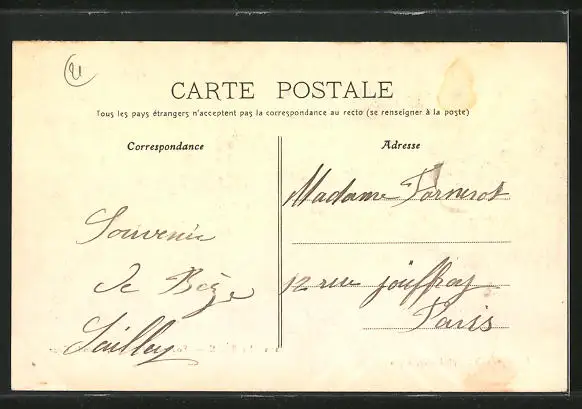 CARTE POSTALE
Tous les pays étrangers n'acceptent pas la correspondance au recto (se renseigner à la poste)
Correspondance
Souvenir
de Bèze
Sailley
Adresse
Madame Fornerot
12 rue Jouffroy
Paris